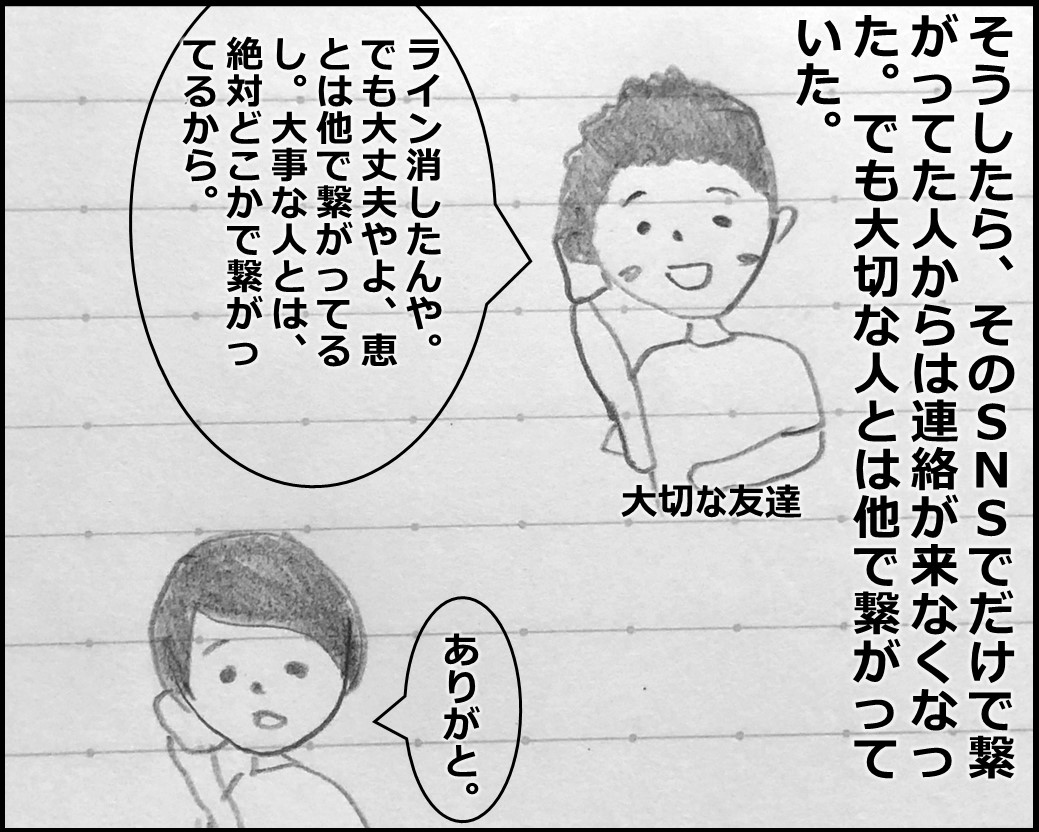 そうしたら、そのＳＮＳでだけで繋
がってた人からは連絡が来なくなっ
た。でも大切な人とは他で繋がって
いた。
ライン消したんや。
でも大丈夫やよ、恵
とは他で繋がってる
し。大事な人とは、
絶対どこかで繋がっ
てるから。
大切な友達
ありがと。